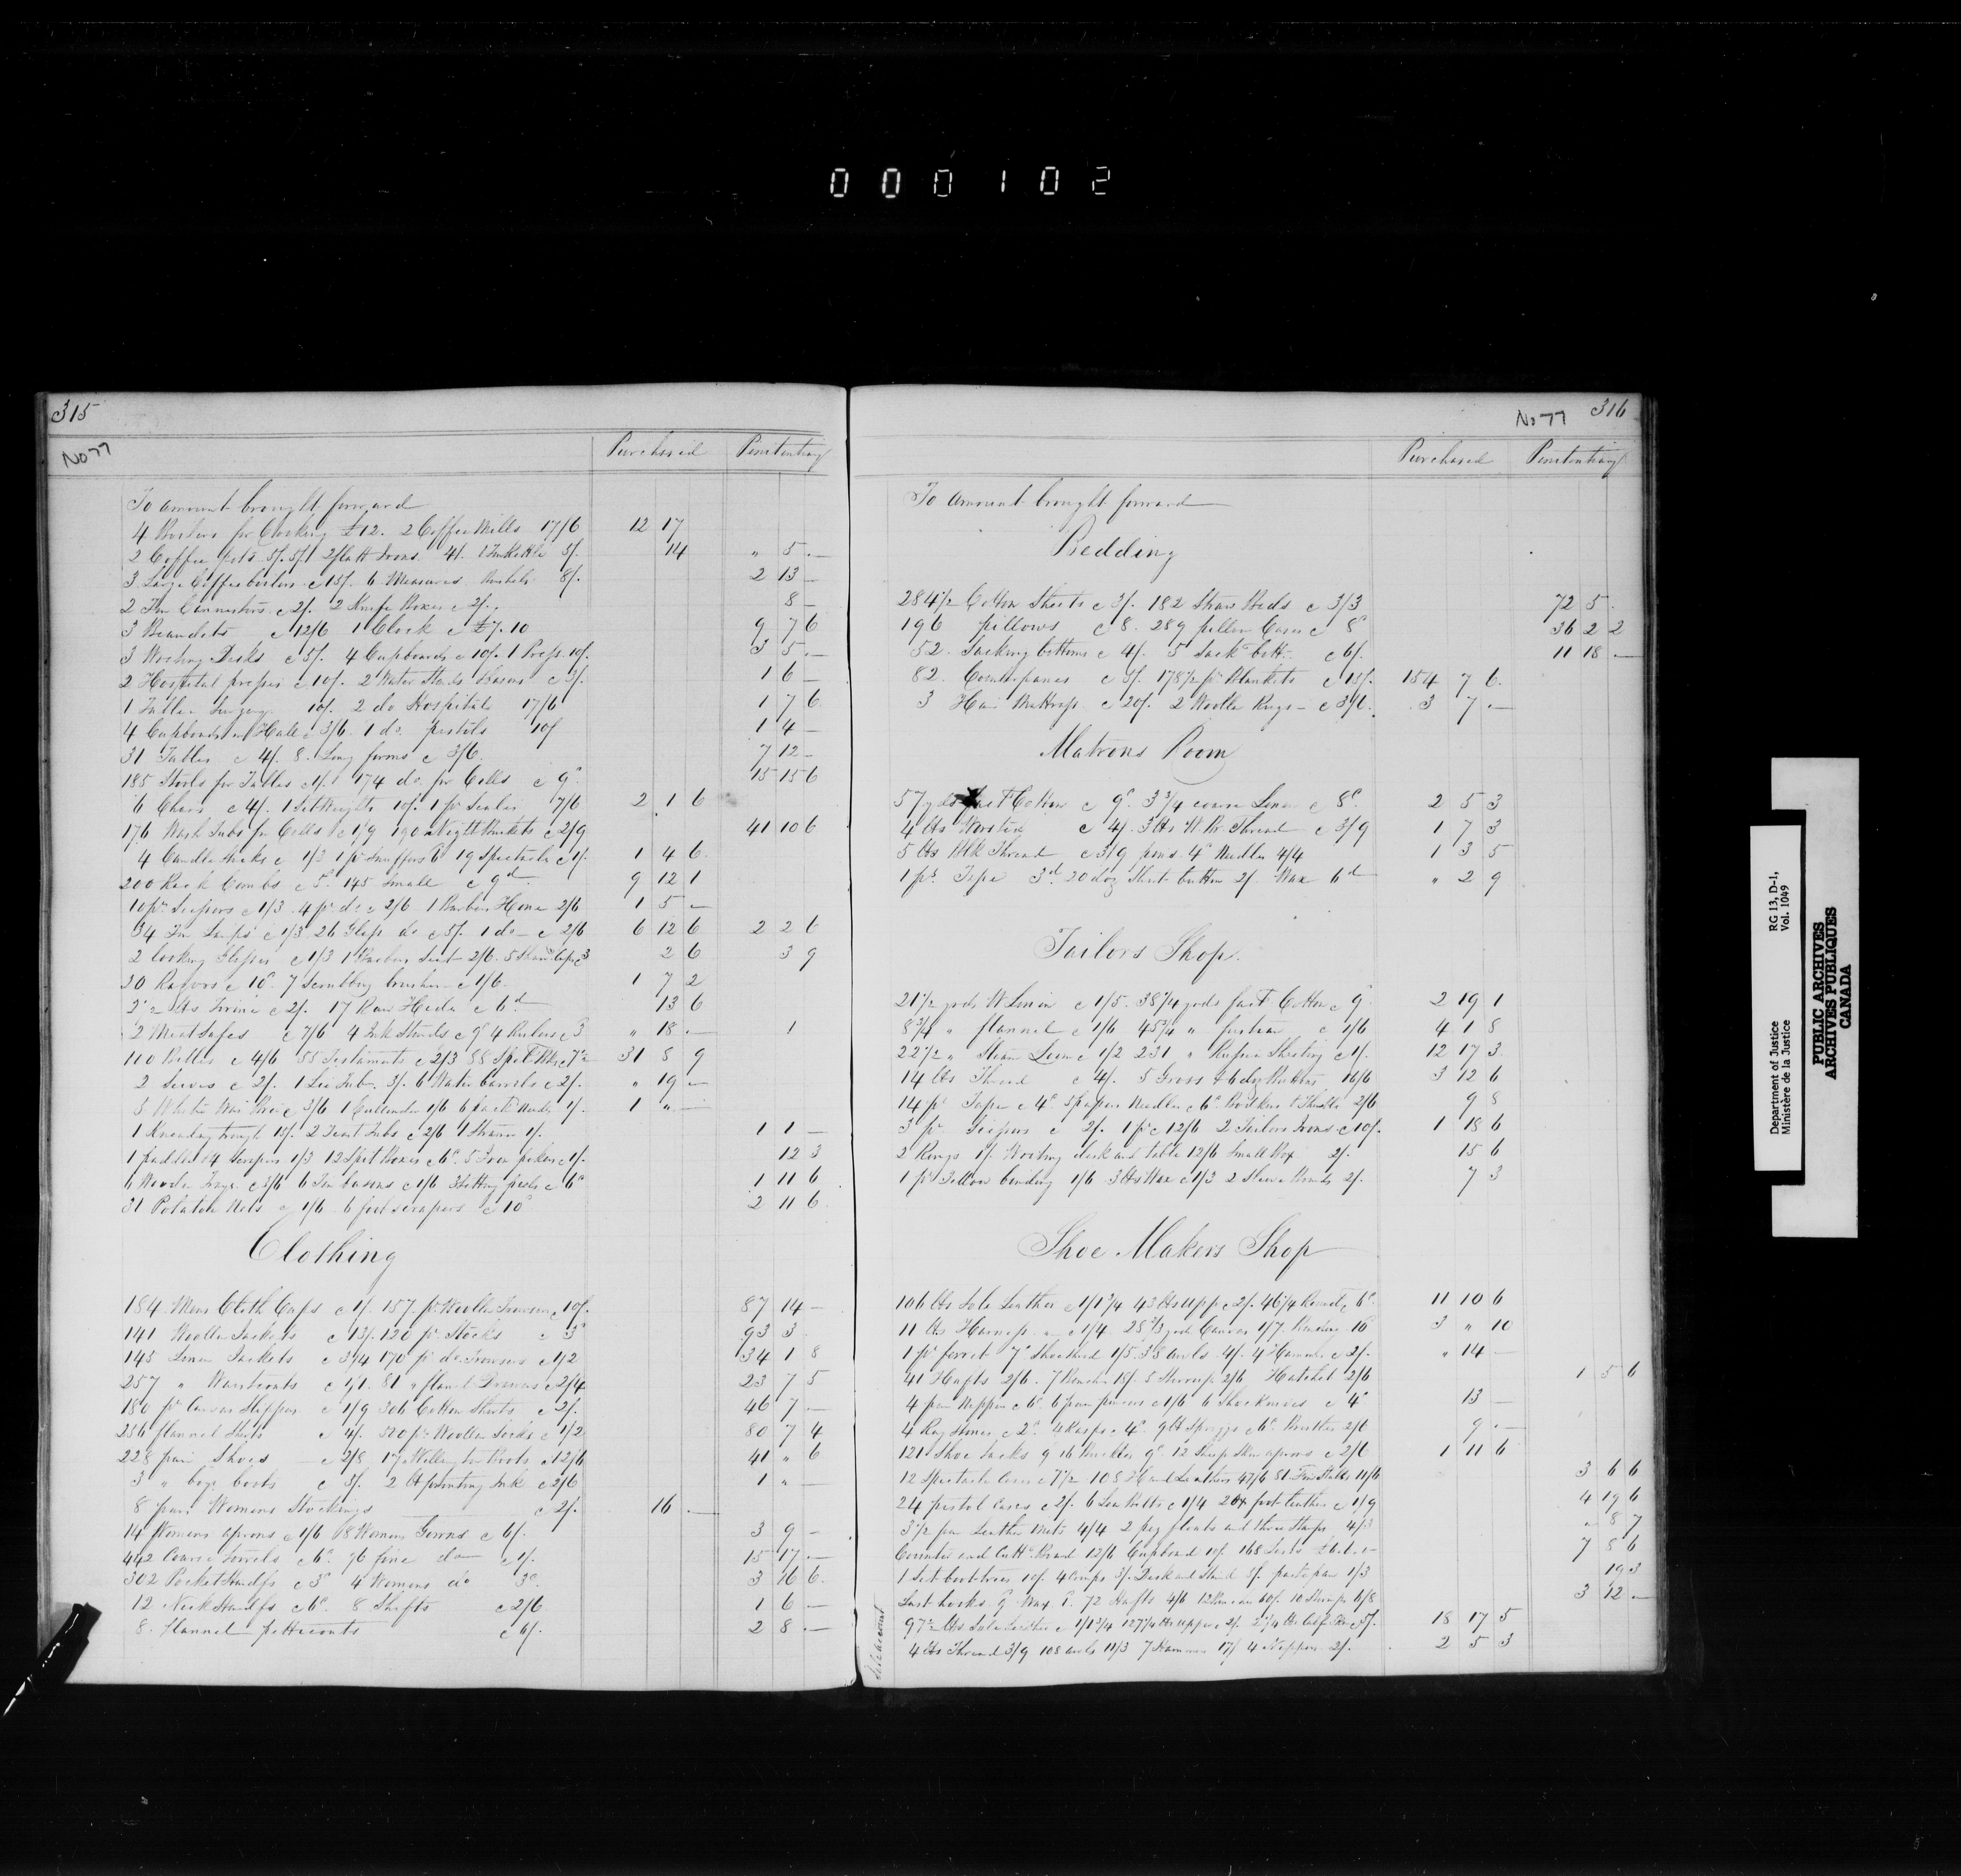 000102
315
No 77
Purchased Penitentiary
To amount brought forward
4 Boilers for Cooking £12. 2 Coffee Mills 17/6 12 17
2 Coffee pots 5/. 5/. 2 flatt Irons 4/. 1 Tinkettle 5/. 14 " 5 —
3 Large Coffee boilers c 15/. 6 Measures 8/. 2 13 —
2 Tin Cannisters c 2/. 2 Knife Boxes c 2/. 8 —
3 c 12/6 1 Clock c £7.10 9 7 6
3 Writing Desks c 5/. 4 Cupboards c 10/. 1 Press 10/. 3 5 —
2 Hospital presses c 10/. 2 Water Stands basins c 3/. 1 6 —
1 Table Surgery 10/. 2 do Hospital 17/6 1 7 6
4 Cupboards in Hall c 3/6. 1 do. pistols 10/ 1 4 —
31 Tables c 4/. 8. Long forms c 3/6. 7 12 —
185 Stools for Tables c 1/. 174 do. for Cells c 9d 15 15 6
6 Chairs c 4/. 1 Set Weights 10/. 1 pr Scales 7/6 2 1 6
176 Wash Tubs for Cells c 1/9 190 Night Buckets c 2/9 41 10 6
4 Candlesticks c 1/3 1 pr Snuffers 6 19 Spectacles c 1/. 1 4 6
200 Rack Combs c 5d. 145 Small c 9d 9 12 1
10 pr Scissors c 1/3 4 pr do c 2/6 1 Barbers Hone 2/6 1 5 —
34 Tin Lamps c 1/3 26 Glass do c 5/. 1 do — c 2/6 6 12 6 2 2 6
2 looking Glasses c 1/3 1 Barbers Seat 2/6. 5 c 3 2 6 3 9
30 Razors c 10d. 7 Scrubbing brushes c 1/6. 1 7 2
lbs Twine c 2/. 17 Raw Hides c 6d 13 6
2 Meat Safes c 7/6 4 Ink Stands c 9d 4 Rulers c 3 " 18 — 1
110 Bibles c 4/6 55 Testaments c 2/3 31 8 9
2 Sieves c 2/. 1 Tub 3/. 6 Water Barrels c 2/. " 19 —
c 3/6 1 Cullender 1/6 6 1/. 1 " —
1 Kneading trough 15/. 2 Tubs c 2/6 1 Strainer 1/. 1 1 —
1 paddle 14 Scrapers 1/3 12 Spit Boxes c 6d. 5 Iron pokers c 1/. 12 3
6 Wooden Trays c 3/6 6 Tin basins c 1/6 c 6d 1 11 6
31 Potatoe Nets c 1/6 6 foot scrapers c 10d 2 11 6
Clothing
184 Mens Cloth Caps c 1/. 157. pr Woollen Trousers c 10/. 87 14 —
141 Woollen Jackets c 13/. 120 pr Stocks c 3d 93 3
145 Linen Jackets c 3/4 170 pr do Trousers c 1/2 34 1 8
257 " Waistcoats c 1/1. 81 " flanel Drawers c 2/4 23 7 5
180 pr Canvas Slippers c 1/9 306 Cotton Shirts c 2/. 46 7 —
256 flannel Shirts c 4/. 500 pr Woollen Socks c 1/2 80 7 4
228 pair Shoes — c 2/8 17 Wellington Boots c 12/6 41 " 6
3 " boys boots c 3/. 2 lb printing Ink c 2/6 1 " —
8 pair Womens Stockings c 2/. 16 —
14 Womens aprons c 1/6 8 Womens Gowns c 6/. 3 9 —
442 Coarse Towels c 6d. 96 fine do — c 1/. 15 17 —
302 Pocket Handfs c 3d 4 Womens do 3d. 3 16 6
12 Neck Handfs c 6d. 8 Shifts c 2/6 1 6 —
8. flannel petticoats c 6/. 2 8 —
No 77 316
Purchased Penitentiary
To amount brought forward
Bedding
284 1/2 Cotton Sheets c 3/. 182 Straw Beds c 3/3 72 5
196 pillows c 8. 289 pillow Cases c 8d 36 2 2
52. Sacking bottoms c 4/. 5 Sackg Bott. c 6/. 11 18 —
82. Counterpanes c 5/. 178 1/2 pr Blankets c 15/. 154 7 6
3 Hair Mattrass c 20/. 2 Woollen Rugs — c 3/6. 3 7 —
Matrons Room
57 yds fact Cotton c 9d. 3 3/4 coarse Linen c 8d. 2 5 3
4 lbs Worsted c 4/. 3 lbs W. Br. Thread c 3/9 1 7 3
5 lbs Blk Thread c 3/9 pins 4d Needles 4/4 1 3 5
1 pr. Tape 3d. 20 doz Shirt button 2/. Wax 6d " 2 9
Tailors Shop.
21 1/2 yds W Linen c 1/5. 38 1/4 yds fact Cotton c 9d 2 19 1
8 3/4 " flannel c 1/6 45 3/4 " fustian c 1/6 4 1 8
22 1/2 " Steam Loom c 1/2 231 " Russia Sheeting c 1/. 12 17 3
14 lbs Thread c 4/. 5 Gross & 6 doz Buttons 16/6 3 12 6
14 pr Tape c 4d. 5 papers Needles c 6d. Bodkins & Thimbles 2/6 9 8
3 pr Scissors c 2/. 1 pr c 12/6 2 Tailors Irons c 10/. 1 18 6
2 Rings 1/. Writing desk and table 12/6 Small Box 2/. 15 6
1 pr binding 1/6 3 lbs Wax c 1/3 2 Sleeve Boards 2/. 7 3
Shoe Makers Shop
106 lbs Sole Leather c 1/1 3/4 43 lbs upp c 2/. 46 1/4 c 6d. 11 10 6
11 lbs Harness c 1/4. 28 2/3 yds Canvas 1/7. Binding 16 3 " 10
1 pr ferret 7d. Shoethread 1/5. 38 awls 4/. 4 Hammers c 2/. " 14 —
41 Hafts 2/6. 7 Benches 15/. 5 Stirrups 2/6 Hatchet 2/6 1 5 6
4 pair Nippers c 6d. 6 pair pincers c 1/6 6 Shoe Knives c 4d 13 —
4 Rag Stones c 2d. 4 Rasps c 4d. 9 lb Spriggs c 6d. Bristles 2/6 9 —
121 Shoe Tacks 9 16 Buckles 9d. 12 Sheep Skin aprons c 2/6 1 11 6
12 Spectacle Cases c 7 1/2 108 Hand Leathers 47/6 81 Fin Stalls 11/6 3 6 6
24 pistol Cases c 2/. 6 Belts c 1/4 foot leathers c 1/9 4 19 6
3 1/2 pair Leather Mitts 4/4 2 peg floats and three Strops 4/3 " 8 7
Counter and Cuttg Board 12/6 Cupboard 10/. 168 Lasts 7 5 6
1 Set boot trees 10/. 4 Camps 3/. Desk and Stand 5/. paste pan 1/3 19 3
Last hooks 9 Wax 1. 72 Hafts 4/6 12 Pincers 60/. 10 Stirrups 6/8 3 12 —
97 1/2 lbs Sole Leather c 1/1 3/4 127 1/4 lbs upper c 2/. 2 1/4 lbs Calf Skin c 5/. 18 17 5
4 lbs Thread 3/9 108 awls 11/3 7 Hammers 17/ 4 Nippers 2/. 2 5 3
Department of Justice
Ministère de la Justice
RG 13, D-1,
Vol. 1049
PUBLIC ARCHIVES
ARCHIVES PUBLIQUES
CANADA